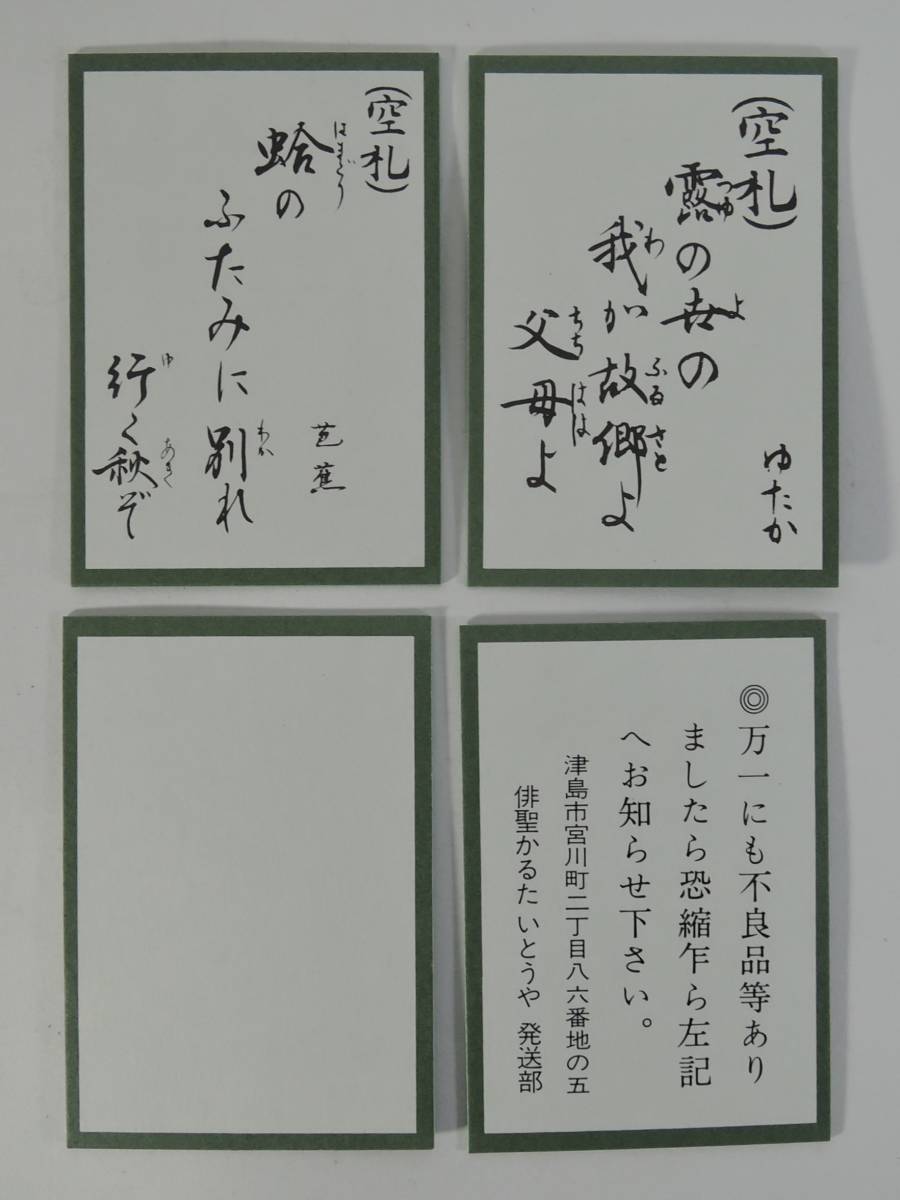 (空札)
蛤の
はまぐり
ふたみに別れ
わか
行く秋ぞ
ゆ
あき
芭蕉
(空札)
露の世の
つゆ
よ
我が故郷よ
わ
ふるさと
父母よ
ちち
はは
ゆたか
◎万一にも不良品等あり
ましたら恐縮乍ら左記
へお知らせ下さい。
津島市宮川町二丁目八六番地の五
俳聖かるた いとうや 発送部